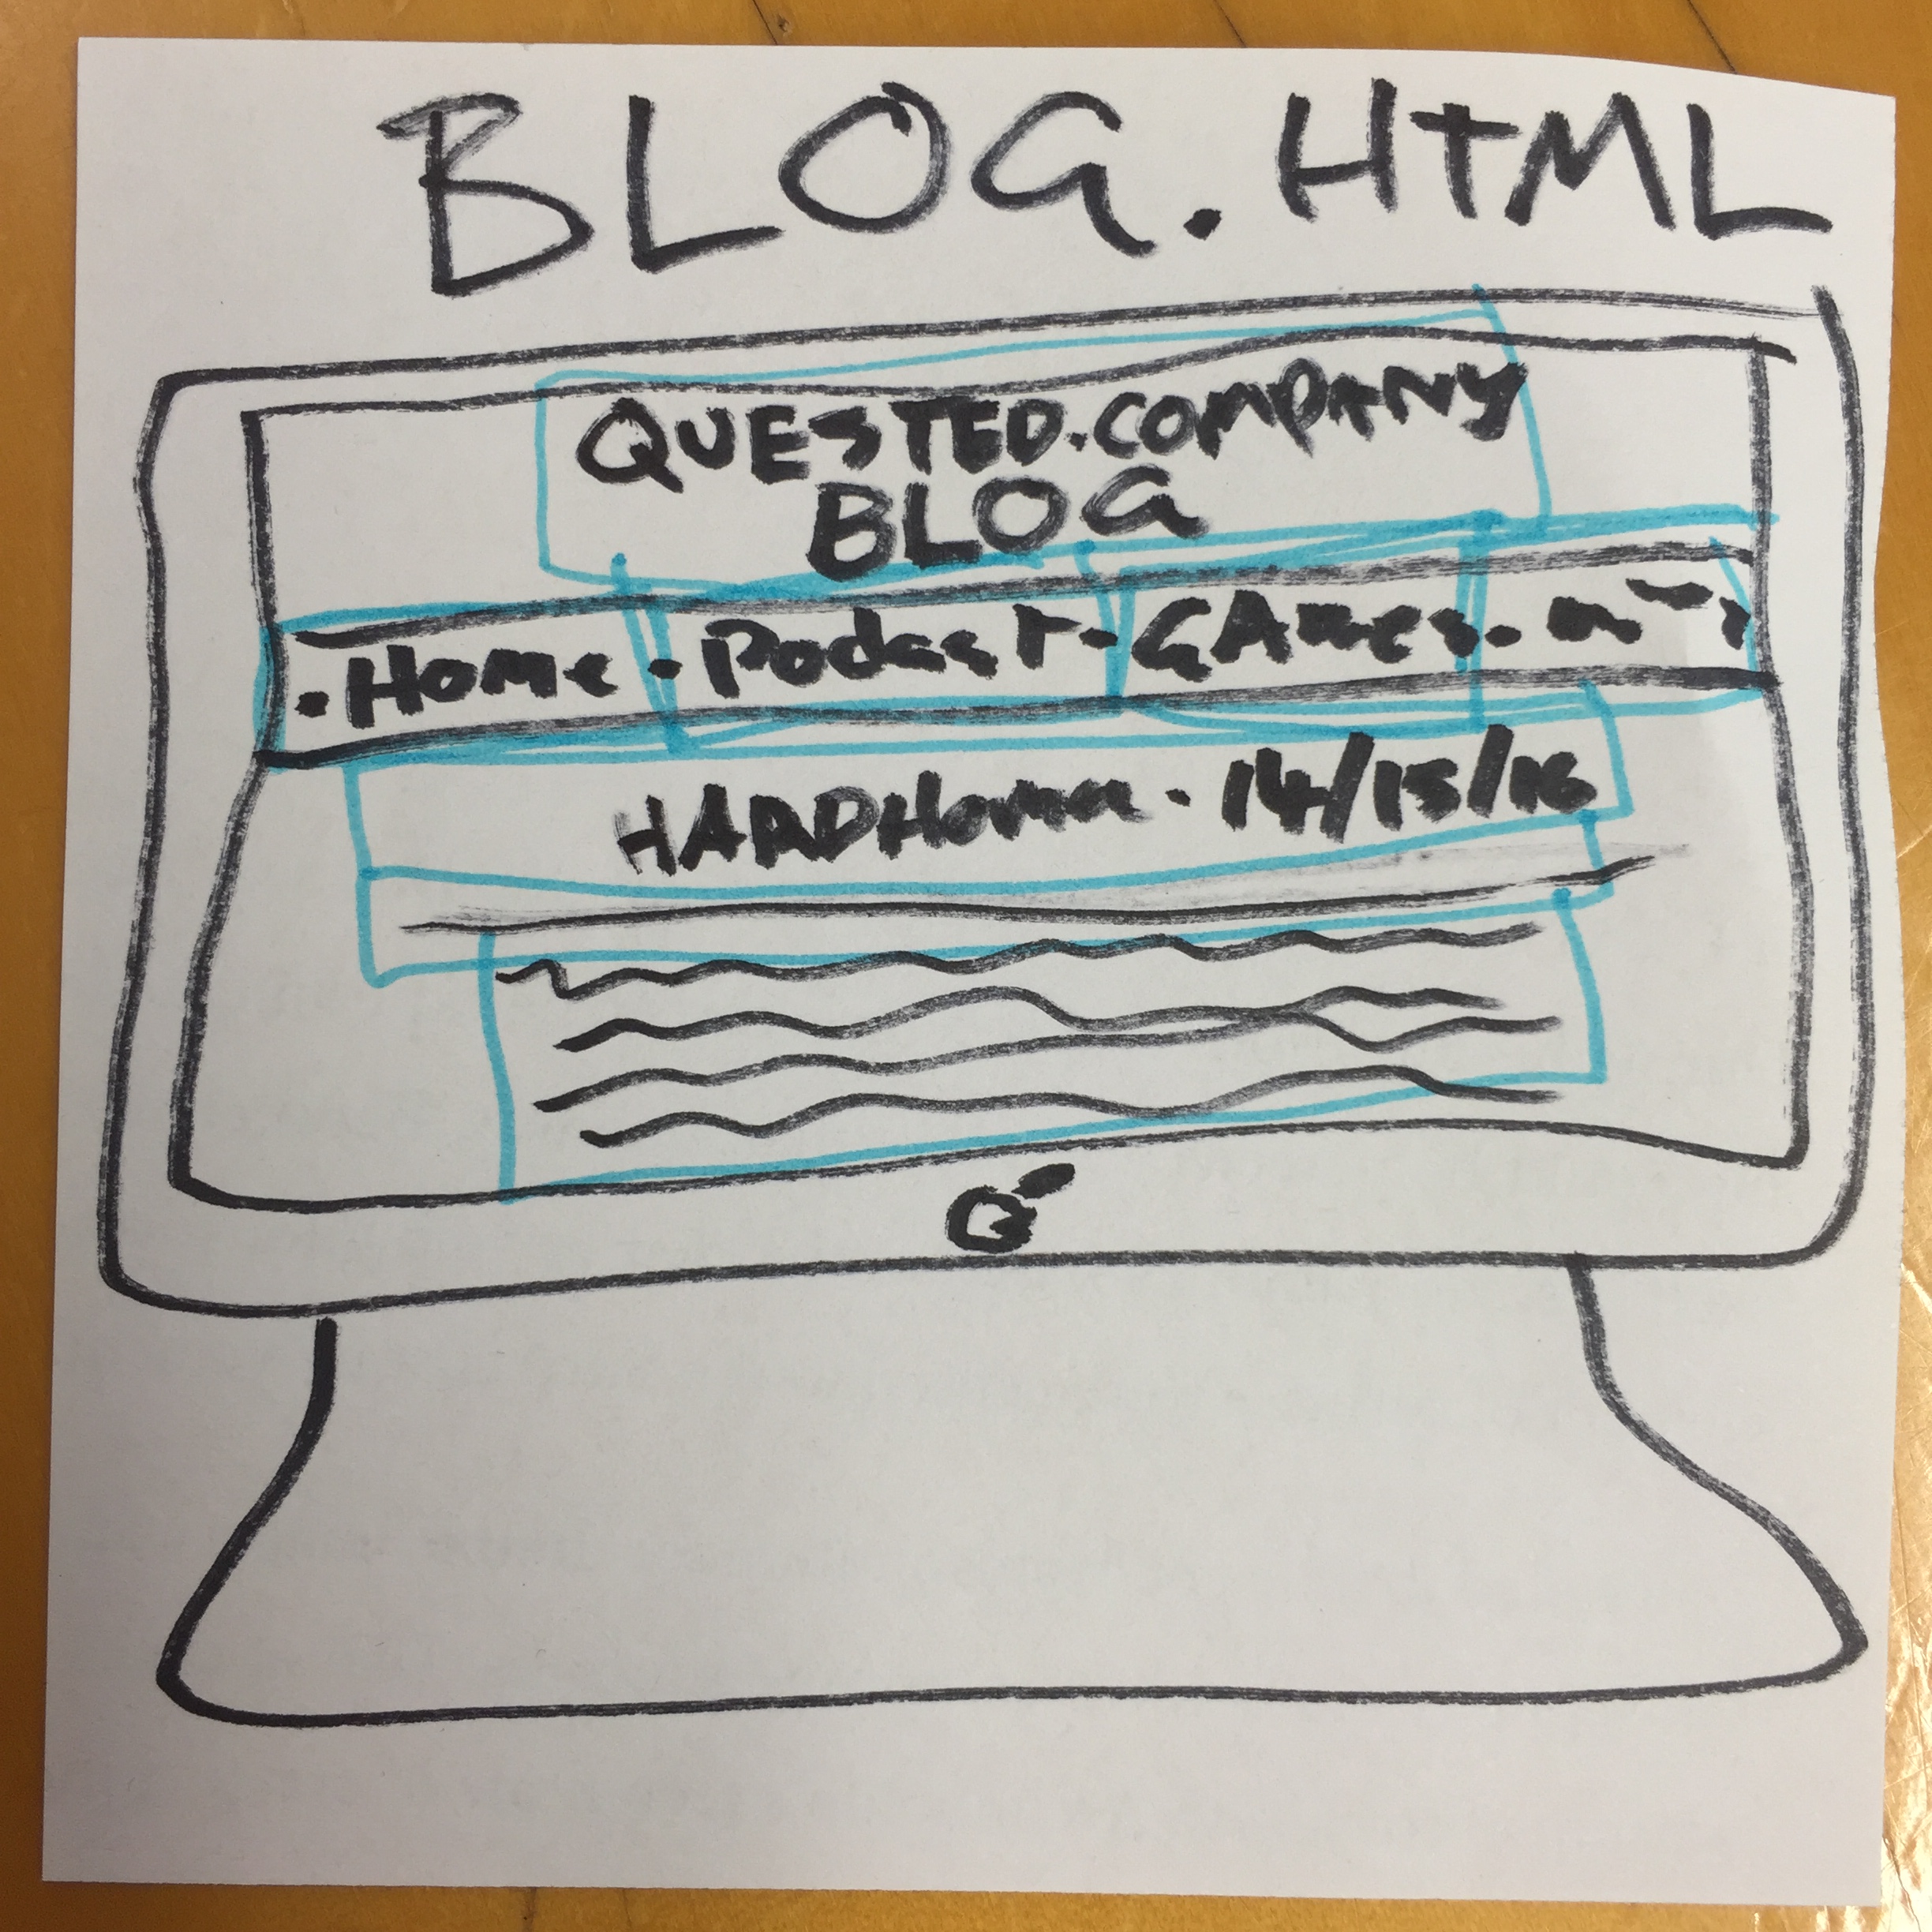 BLOG.HTML
QUESTED.COMPANY
BLOG
• Home • Podcast • GAmes •
HARDHome • 14/15/16